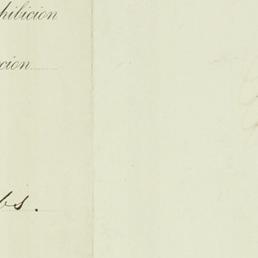 hibicion
cion
bs.